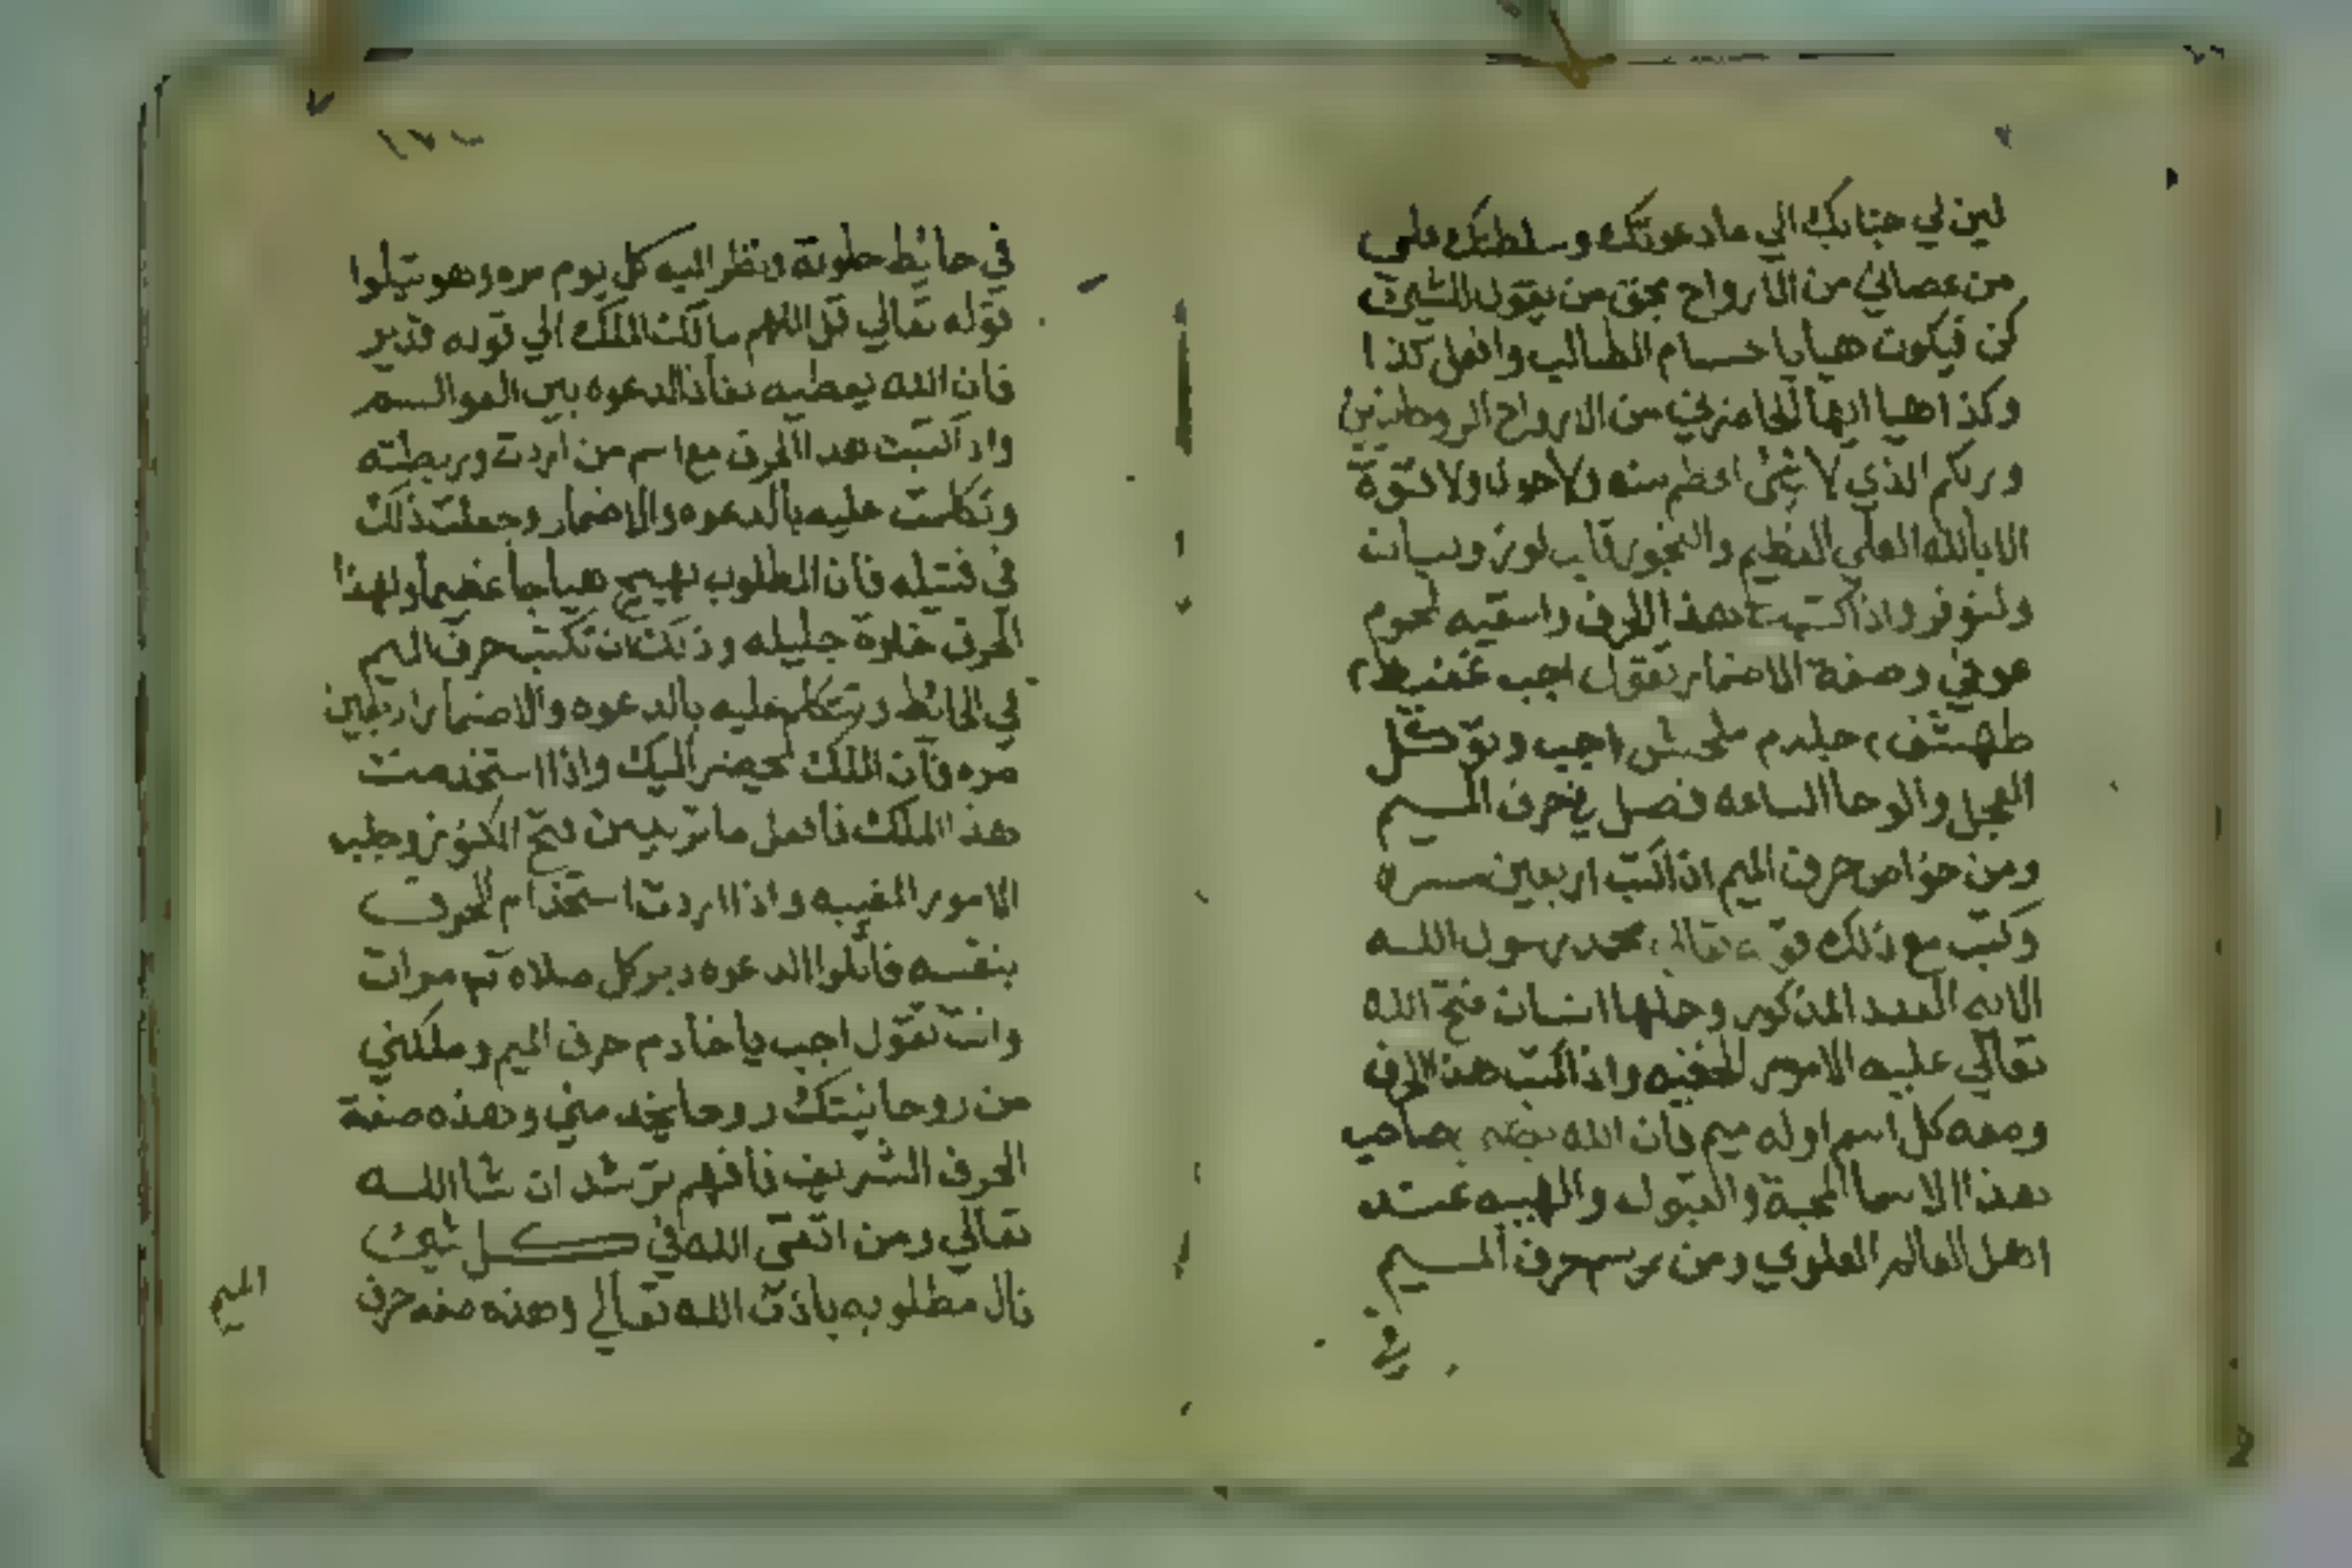 لين لي جنابك الي ما دعوتك وسلطتك علي
من عصاني من الارواح بحق من يقول للشي
كن فيكون هيا يا خسام الطالب وافعل كذا
وكذا هيا ايها من الارواح
وربكم الذي لا شي اعظم منه ولا حول ولا قوة
الا بالله العلي العظيم والبخور قلب لوز ولبان
ولنوفر واذا كتبت هذا الحرف واسقيه لمحوم
عوفي وصفة الاضمار تقول اجب
اجب وتوكل
العجل والوحا الساعه فصل في حرف الميم
ومن خواص حرف الميم اذا كتب اربعين مره
وكتب مع ذلك قوله تعالي محمد رسول الله
الايه العدد المذكور وحملها انسان فتح الله
تعالي عليه الامور الخفيه واذا كتب هذا الحرف
ومعه كل اسم اوله ميم فان الله صاحب
هذا الاسما المحبة والقبول والهيبه عند
اهل العالم العلوي ومن رسم حرف الميم
في
١٧٠
في حايط خلوته ونظر اليه كل يوم مره وهو يتلوا
قوله تعالي قل اللهم مالك الملك الي قوله قدير
فان الله يعطيه نفاذ الدعوه بين العوالم
واذا كتبت هذا الحرف مع اسم من اردت وربطته
وتكلمت عليه بالدعوه والاضمار وجعلت ذلك
في فتيله فان المطلوب يهيج هياجا عظيما ولهذا
الحرف خلوة جليله وذلك ان تكتب حرف الميم
في الحايط وتتكلم عليه بالدعوه والاضمار اربعين
مره فان الملك يحضر اليك واذا استخدمت
هذا الملك فافعل ما تريد من فتح الكنوز وطلب
الامور المغيبه واذا اردت استخدام الحرف
بنفسه فاتلوا الدعوه دبر كل صلاه مرات
وانت تقول اجب يا خادم حرف الميم وملكني
من روحانيتك روحا يخدمني وهذه صفة
الحرف الشريف فافهم ترشد ان شا الله
تعالي ومن اتقي الله في كل شي
نال مطلوبه باذن الله تعالي وهذه صفه حرف
الميم